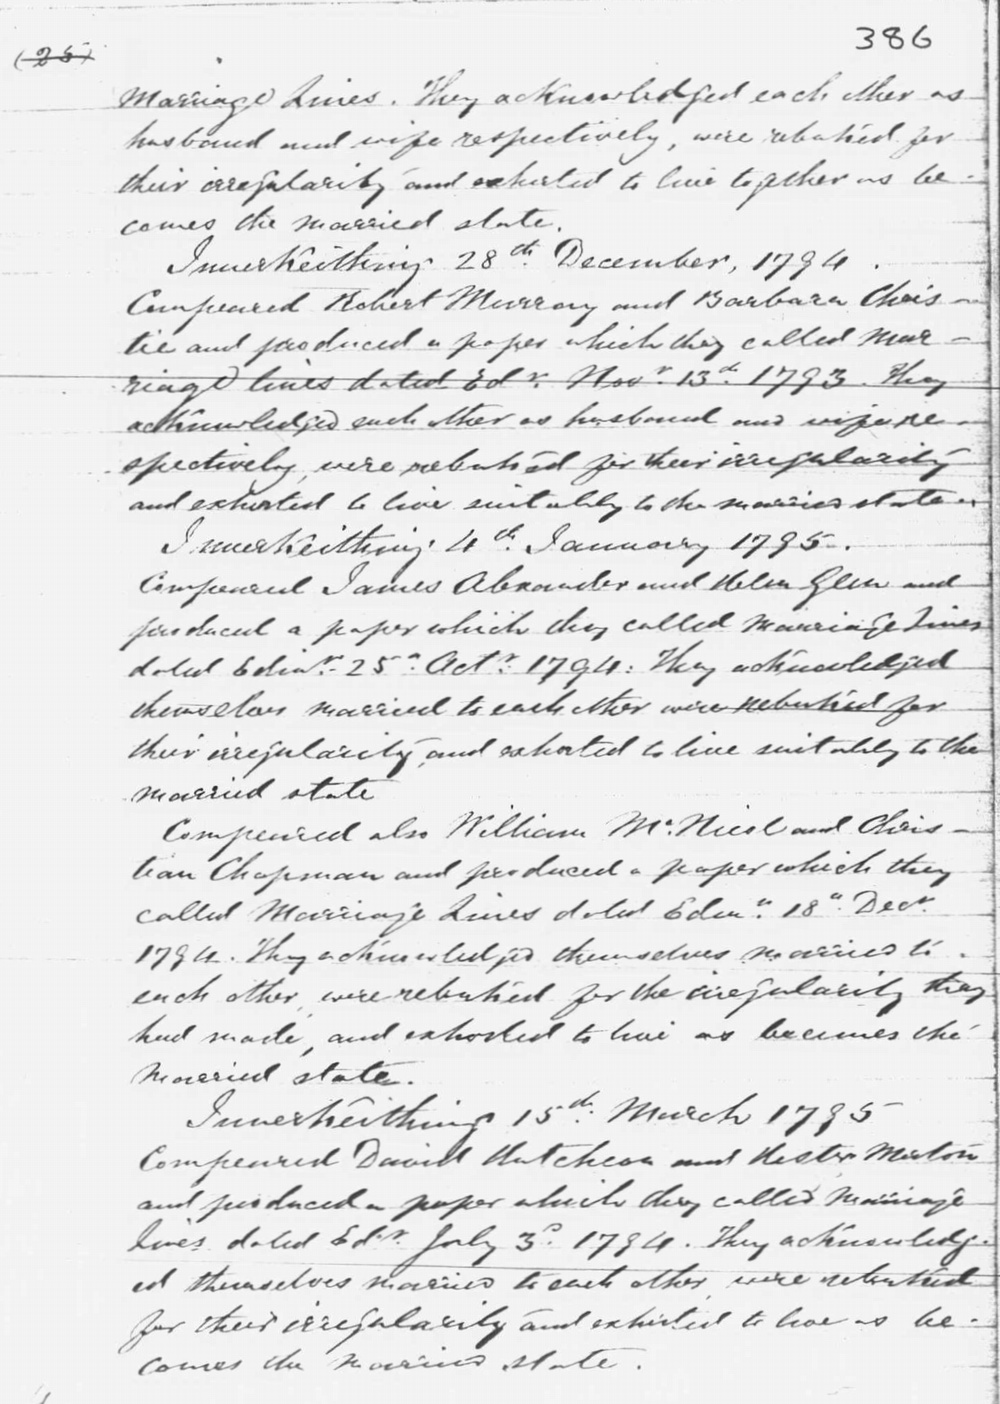 (25)
386
Marriage Lines. They acknowledged each other as
husband and wife respectively, were rebuked for
their irregularity and exhorted to live together as be-
comes the married state.
Innerkeithing 28th. December, 1794.
Compeared Robert Murray and Barbara Chris-
tie and produced a paper which they called Mar-
riage lines dated Edr. Novr. 13th. 1793. They
acknowledged each other as husband and wife re-
spectively, were rebuked for their irregularity
and exhorted to live suitably to the married state.
Innerkeithing 4th. January 1795.
Compeared James Alexander and Helen Glen and
produced a paper which they called Marriage Lines
dated Edinr. 25th. Octr. 1794: They acknowledged
themselves married to each other were rebuked for
their irregularity, and exhorted to live suitably to the
married state
Compeared also William Mc.Nicol and Chris-
tian Chapman and produced a paper which they
called Marriage Lines dated Edinr. 18th. Decr.
1794. They acknowledged themselves married to
each other, were rebuked for the irregularity they
had made, and exhorted to live as becomes the
married state.
Innerkeithing 15th. March 1795
Compeared David Hutcheon and Hester Morton
and produced a paper which they called Marriage
lines dated Edr. July 3d. 1794. They acknowledg-
ed themselves married to each other, were rebuked
for their irregularity and exhorted to live as be-
comes the married state.